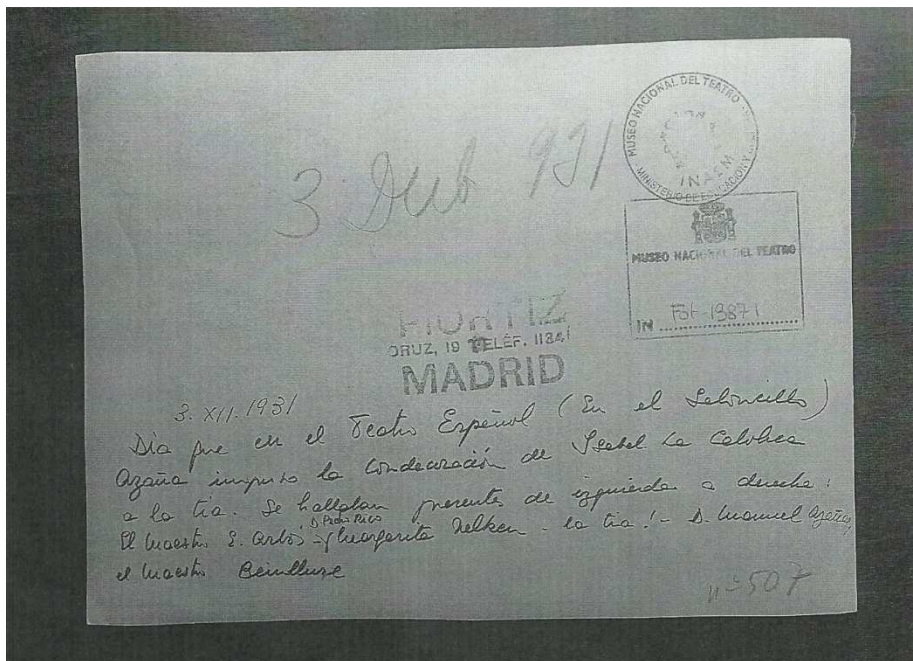 MUSEO NACIONAL DEL TEATRO
MINISTERIO DE EDUCACION Y
INAEM
3 Dub 931
MUSEO NACIONAL DEL TEATRO
IN Fot-13871
HORTIZ
CRUZ, 19 TELÉF. 11341
MADRID
3. XII. 1931
Día que en el Teatro Español (En el Saloncillo)
Azaña impuso la Condecoración de Isabel La Católica
a la tia. Se hallaban presente de izquierda a derecha:
D. Pedro Rico
El Maestro E. Arbós - y Margarita Nelken - la tia! - D. Manuel Azaña,
el Maestro Benlliure
nº 507